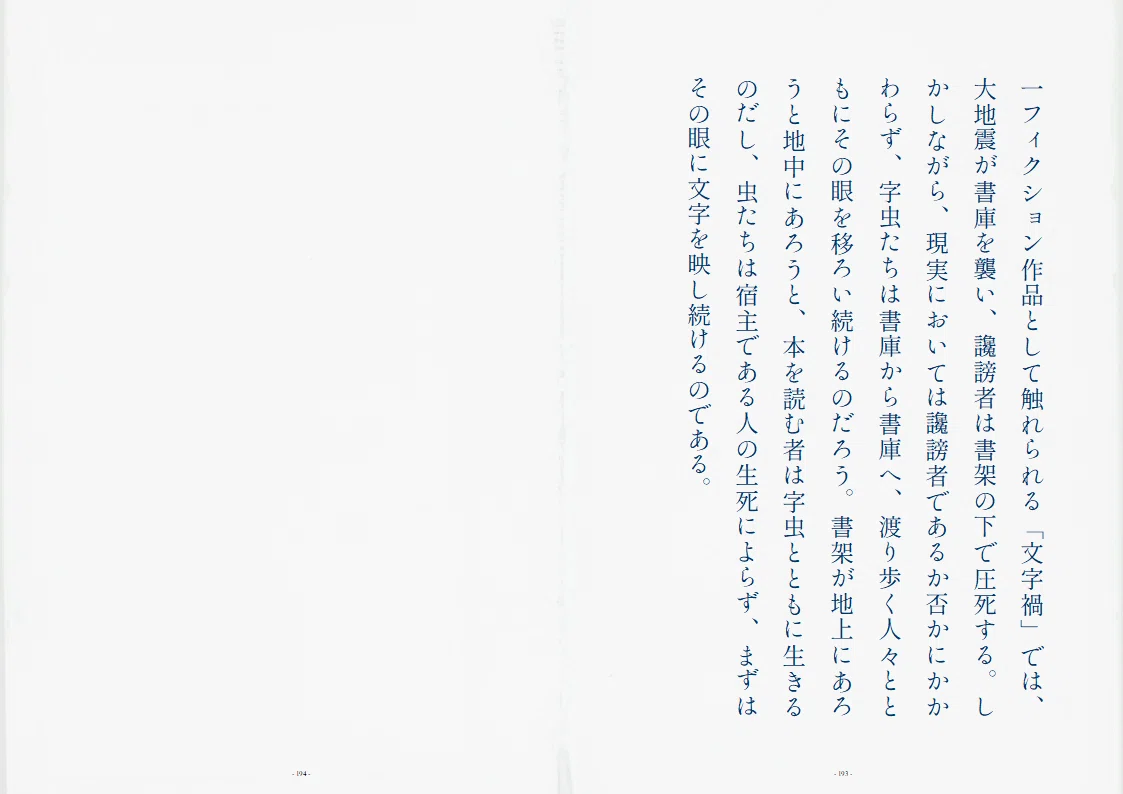 一フィクション作品として触れられる「文字禍」では、
大地震が書庫を襲い、讒謗者は書架の下で圧死する。し
かしながら、現実においては讒謗者であるか否かにかか
わらず、字虫たちは書庫から書庫へ、渡り歩く人々とと
もにその眼を移ろい続けるのだろう。書架が地上にあろ
うと地中にあろうと、本を読む者は字虫とともに生きる
のだし、虫たちは宿主である人の生死によらず、まずは
その眼に文字を映し続けるのである。
- 193 -
- 194 -